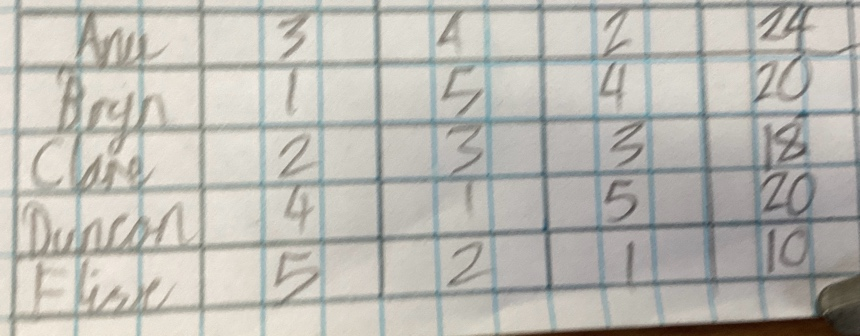 Anu 3 4 2 24
Bryn 1 5 4 20
Clare 2 3 3 18
Duncan 4 1 5 20
Elise 5 2 1 10